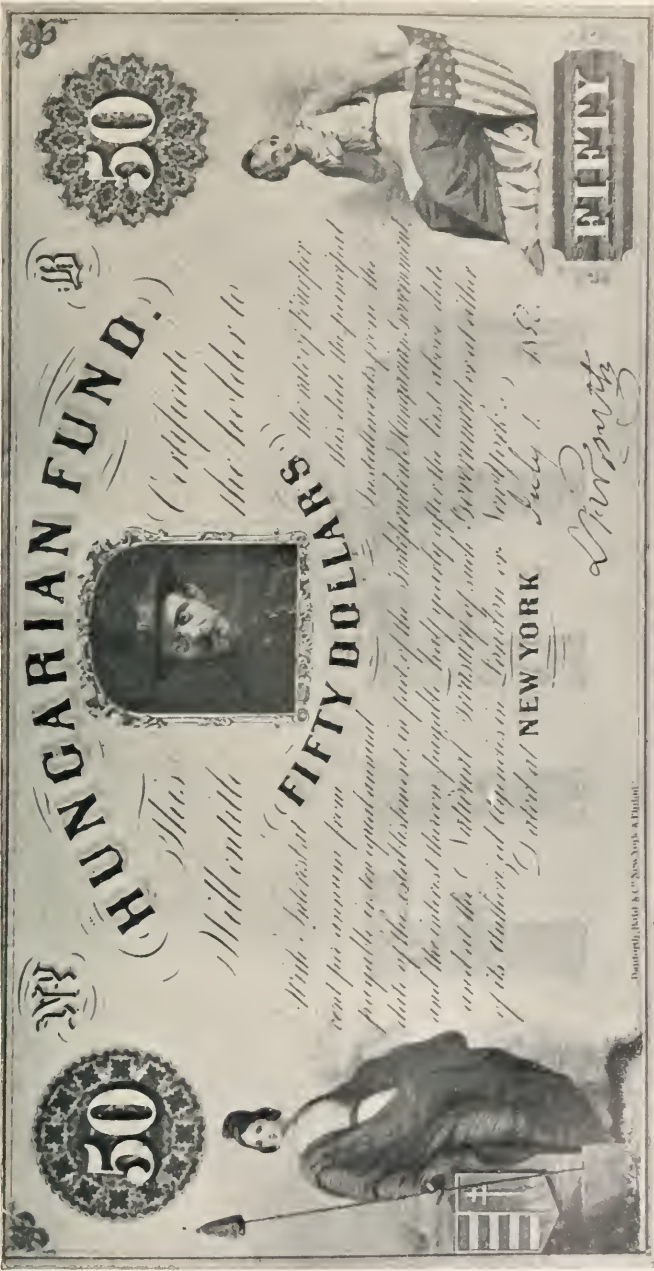 50 50
HUNGARIAN FUND.
This Certificate
Will entitle the holder to
FIFTY DOLLARS,
With Interest at the rate of four per
cent per annum from this date the principal
payable in ten equal annual Instalments from the
date of the establishment in fact, of the Independent Hungarian Government
and the interest thereon payable half yearly after the last above date
and at the National Treasury of such Government or at either
of its authorized Agencies in London or New York.
Dated at NEW YORK July 1. 1852
FIFTY
Danforth, Bald & Co. New York & Philada.